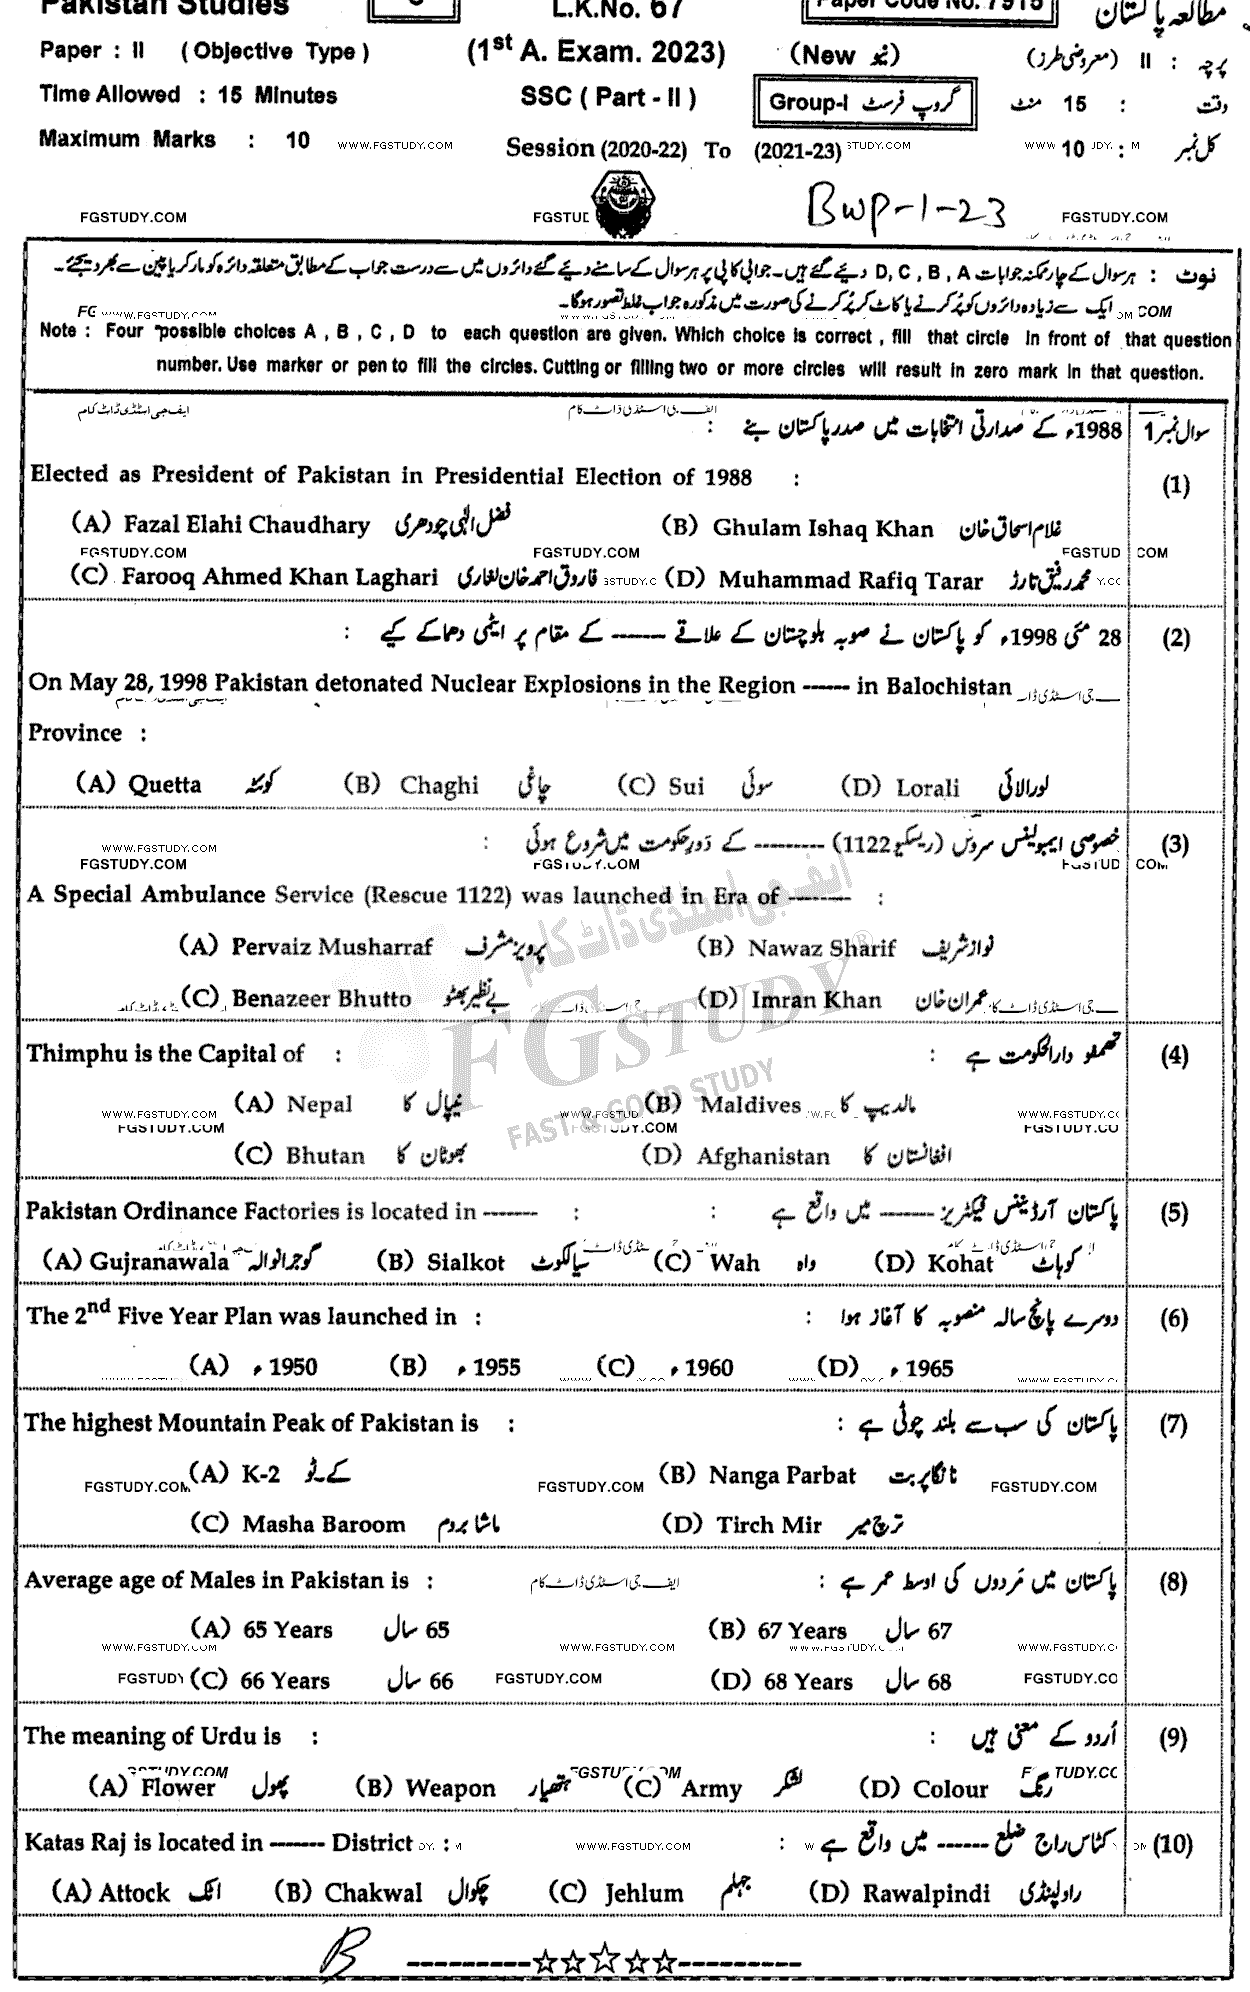 Pakistan Studies
L.K.No. 67
Paper Code No. 7915
مطالعہ پاکستان
Paper : II ( Objective Type )
(1st A. Exam. 2023)
(New نیو)
پرچہ : II (معروضی طرز)
Time Allowed : 15 Minutes
SSC ( Part - II )
Group-I گروپ فرسٹ
وقت : 15 منٹ
Maximum Marks : 10
WWW.FGSTUDY.COM
Session (2020-22) To (2021-23)
کل نمبر : 10
FGSTUDY.COM
BWP-1-23
FGSTUDY.COM
نوٹ : ہر سوال کے چار ممکنہ جوابات D, C, B, A دیئے گئے ہیں۔ جوابی کاپی پر ہر سوال کے سامنے دیئے گئے دائروں میں سے درست جواب کے مطابق متعلقہ دائرہ کو مارکر یا پین سے بھر دیجئے۔
ایک سے زیادہ دائروں کو پُر کرنے یا کاٹ کر پُر کرنے کی صورت میں مذکورہ جواب غلط تصور ہوگا۔
Note : Four possible choices A , B , C , D to each question are given. Which choice is correct , fill that circle in front of that question
number. Use marker or pen to fill the circles. Cutting or filling two or more circles will result in zero mark in that question.
سوال نمبر 1
1988ء کے صدارتی انتخابات میں صدر پاکستان بنے :
Elected as President of Pakistan in Presidential Election of 1988 : (1)
(A) Fazal Elahi Chaudhary فضل الٰہی چودھری (B) Ghulam Ishaq Khan غلام اسحاق خان
FGSTUDY.COM FGSTUDY.COM FGSTUD COM
(C) Farooq Ahmed Khan Laghari فاروق احمد خان لغاری (D) Muhammad Rafiq Tarar محمد رفیق تارڑ
28 مئی 1998ء کو پاکستان نے صوبہ بلوچستان کے علاقے ------ کے مقام پر ایٹمی دھماکے کیے : (2)
On May 28, 1998 Pakistan detonated Nuclear Explosions in the Region ------ in Balochistan
Province :
(A) Quetta کوئٹہ (B) Chaghi چاغی (C) Sui سوئی (D) Lorali لورالائی
خصوصی ایمبولینس سروس (ریسکیو 1122) --------- کے دَورِ حکومت میں شروع ہوئی : (3)
WWW.FGSTUDY.COM
FGSTUDY.COM FGSTUDY.COM FGSTUD COM
A Special Ambulance Service (Rescue 1122) was launched in Era of -------- :
(A) Pervaiz Musharraf پرویز مشرف (B) Nawaz Sharif نواز شریف
(C) Benazeer Bhutto بے نظیر بھٹو (D) Imran Khan عمران خان
ایف جی اسٹڈی ڈاٹ کام
FGSTUDY®
FAST & GOOD STUDY
Thimphu is the Capital of : تھمفو دارالحکومت ہے : (4)
(A) Nepal نیپال کا (B) Maldives مالدیپ کا
WWW.FGSTUDY.COM
(C) Bhutan بھوٹان کا (D) Afghanistan افغانستان کا
Pakistan Ordinance Factories is located in ------- : پاکستان آرڈیننس فیکٹریز ------- میں واقع ہے : (5)
(A) Gujranawala گوجرانوالہ (B) Sialkot سیالکوٹ (C) Wah واہ (D) Kohat کوہاٹ
The 2nd Five Year Plan was launched in : دوسرے پانچ سالہ منصوبہ کا آغاز ہوا : (6)
(A) ء 1950 (B) ء 1955 (C) ء 1960 (D) ء 1965
The highest Mountain Peak of Pakistan is : پاکستان کی سب سے بلند چوٹی ہے : (7)
(A) K-2 کے۔ٹو (B) Nanga Parbat نانگا پربت
FGSTUDY.COM FGSTUDY.COM FGSTUDY.COM
(C) Masha Baroom ماشا بروم (D) Tirch Mir ترچ میر
Average age of Males in Pakistan is : ایف جی اسٹڈی ڈاٹ کام پاکستان میں مَردوں کی اوسط عمر ہے : (8)
(A) 65 Years 65 سال (B) 67 Years 67 سال
WWW.FGSTUDY.COM WWW.FGSTUDY.COM
(C) 66 Years 66 سال FGSTUDY.COM (D) 68 Years 68 سال
The meaning of Urdu is : اُردو کے معنی ہیں : (9)
(A) Flower پھول (B) Weapon ہتھیار (C) Army لشکر (D) Colour رنگ
Katas Raj is located in ------- District : WWW.FGSTUDY.COM کٹاس راج ضلع ------ میں واقع ہے : (10)
(A) Attock اٹک (B) Chakwal چکوال (C) Jehlum جہلم (D) Rawalpindi راولپنڈی
B
----------☆☆☆☆☆----------